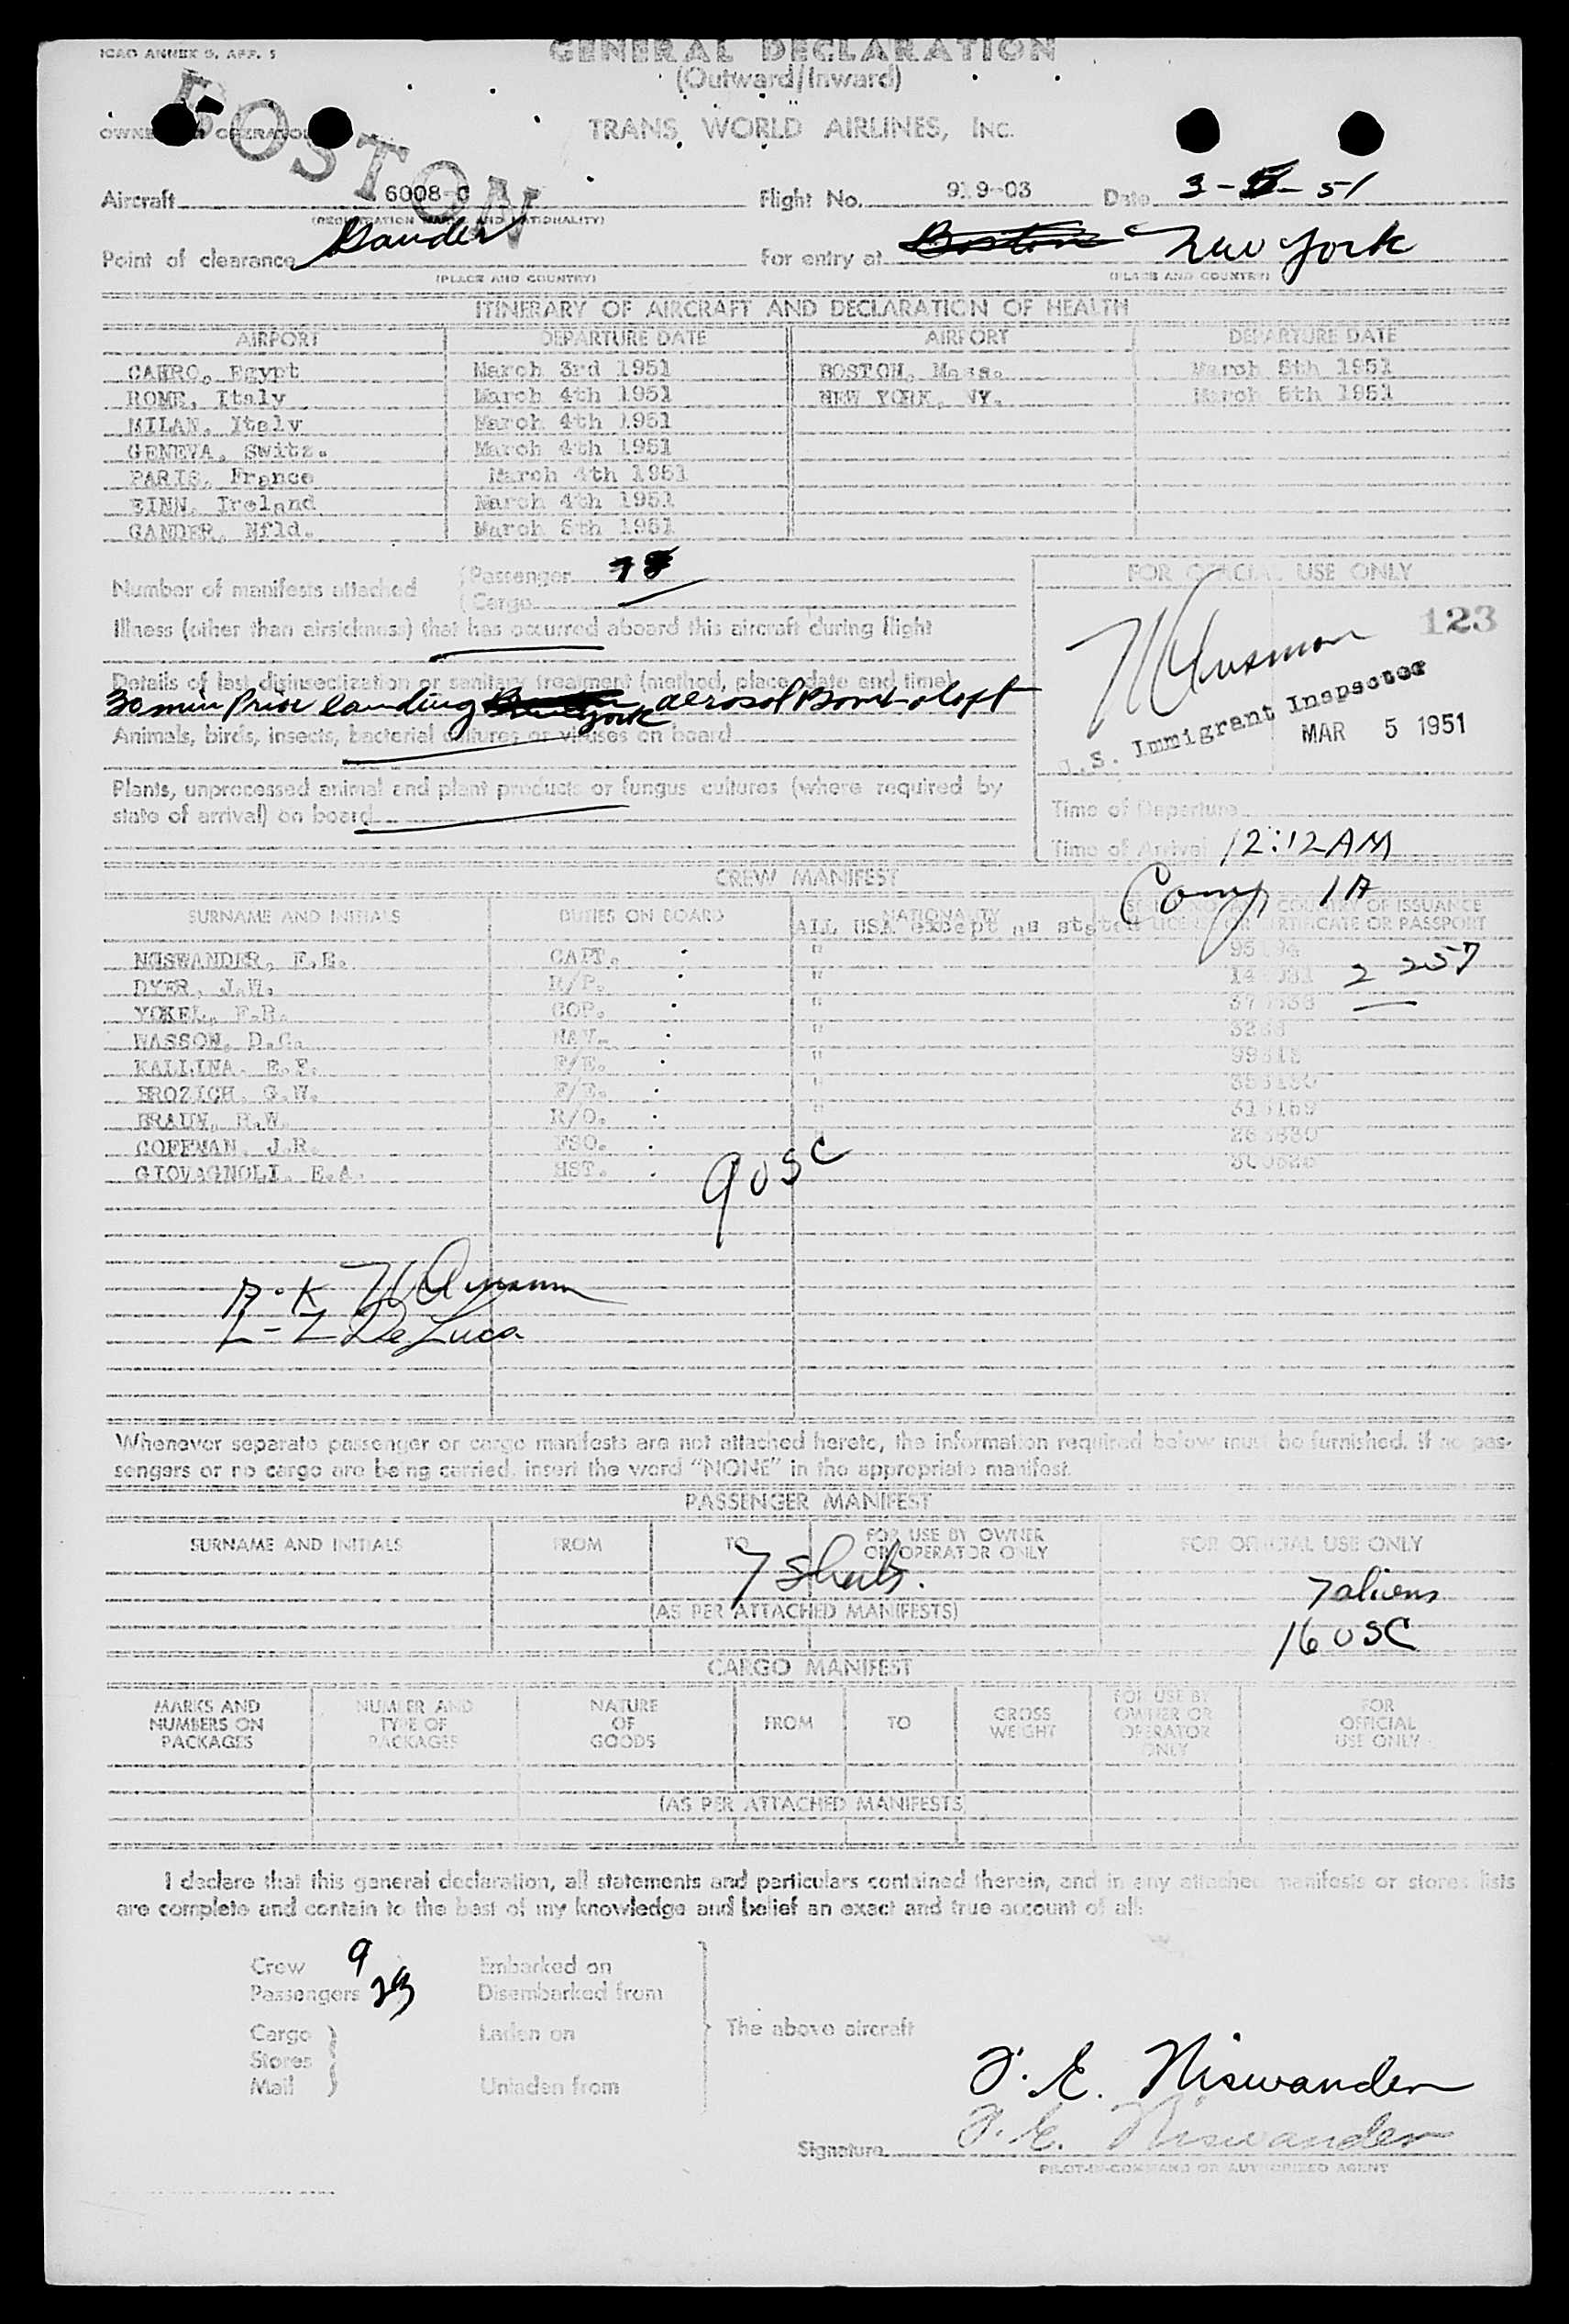 ICAO ANNEX 9, APP. 1
GENERAL DECLARATION
(Outward/Inward)
BOSTON
TRANS WORLD AIRLINES, INC.
Aircraft 6008-C Flight No. 919-03 Date 3-5-51
(REGISTRATION MARKS AND NATIONALITY)
Point of clearance Gander For entry at Boston New York
(PLACE AND COUNTRY) (PLACE AND COUNTRY)
ITINERARY OF AIRCRAFT AND DECLARATION OF HEALTH
AIRPORT DEPARTURE DATE AIRPORT DEPARTURE DATE
CAHRO, Egypt March 3rd 1951 BOSTON, Mass. March 5th 1951
ROME, Italy March 4th 1951 NEW YORK, NY. March 5th 1951
MILAN, Italy March 4th 1951
GENEVA, Switz. March 4th 1951
PARIS, France March 4th 1951
EINN, Ireland March 4th 1951
GANDER, Nfld. March 5th 1951
Number of manifests attached (Passenger
(Cargo
FOR OFFICIAL USE ONLY
123
Illness (other than airsickness) that has occurred aboard this aircraft during flight
Details of last disinsectization or sanitary treatment (method, place, date and time)
30 min Prior landing New York aerosol Bomb aloft
U.S. Immigrant Inspector
MAR 5 1951
Animals, birds, insects, bacterial cultures or viruses on board
Plants, unprocessed animal and plant products or fungus cultures (where required by
state of arrival) on board
Time of Departure
Time of Arrival 12:12 AM
CREW MANIFEST
Comp 1A
SURNAME AND INITIALS DUTIES ON BOARD NATIONALITY COUNTRY OF ISSUANCE
ALL USA except as stated LICENSE CERTIFICATE OR PASSPORT
NEISWANDER, F.E. CAPT. "
DYER, J.W. "
2 257
YOKEL, F.B. COP. "
WASSON, D.C. NAV. "
KALLINA. E.F. F/E. "
BROZICH. G.W. F/E. "
BRAUN, R.W. R/O. "
COFFMAN, J.R. FSO. "
GIOVAGNOLI. E.A. HST.
9 USC
De Luca
Whenever separate passenger or cargo manifests are not attached hereto, the information required below must be furnished. If no pas-
sengers or no cargo are being carried, insert the word "NONE" in the appropriate manifest.
PASSENGER MANIFEST
SURNAME AND INITIALS FROM TO FOR USE BY OWNER OR OPERATOR ONLY FOR OFFICIAL USE ONLY
7 Sheets.
7 aliens
(AS PER ATTACHED MANIFESTS)
16 USC
CARGO MANIFEST
MARKS AND NUMBERS ON PACKAGES NUMBER AND TYPE OF PACKAGES NATURE OF GOODS FROM TO GROSS WEIGHT FOR USE BY OWNER OR OPERATOR ONLY FOR OFFICIAL USE ONLY
(AS PER ATTACHED MANIFESTS)
I declare that this general declaration, all statements and particulars contained therein, and in any attached manifests or stores lists
are complete and contain to the best of my knowledge and belief an exact and true account of all:
Crew 9 Embarked on
Passengers 23 Disembarked from
Cargo Laden on The above aircraft
Stores
Mail Unladen from
F. E. Niswander
Signature F. E. Niswander
PILOT-IN-COMMAND OR AUTHORIZED AGENT